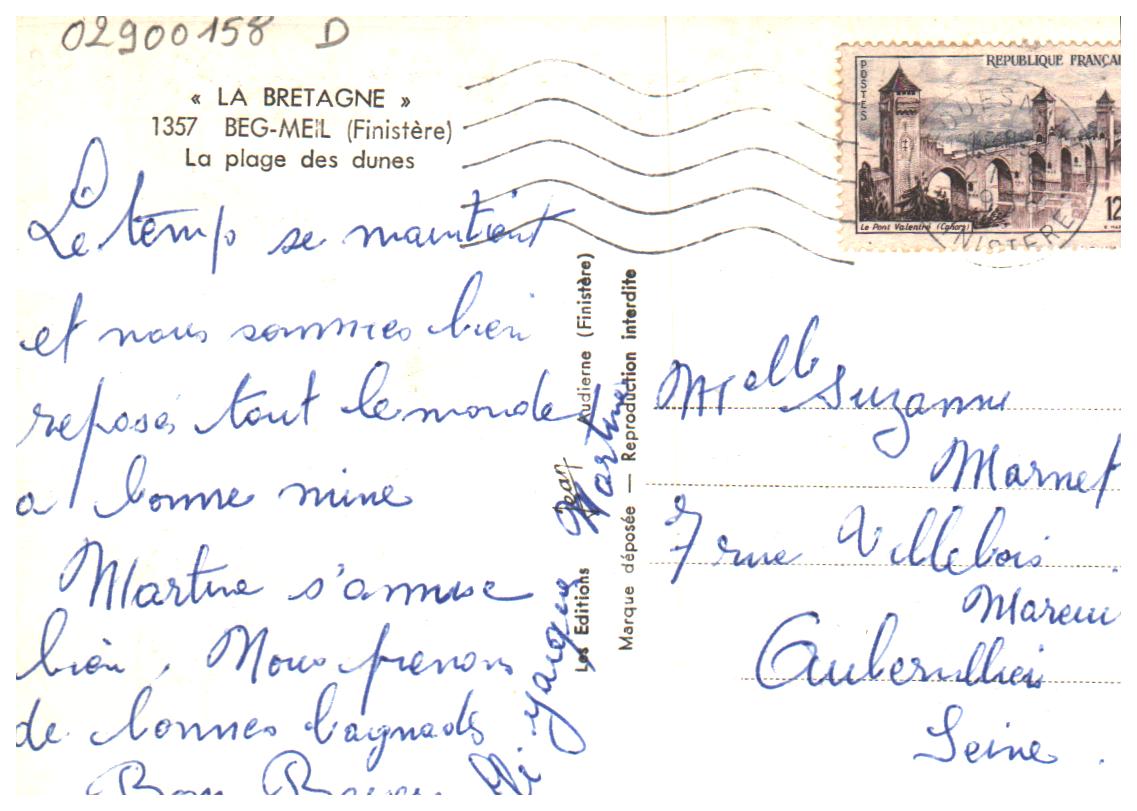 02900158 D
« LA BRETAGNE »
1357 BEG-MEIL (Finistère)
La plage des dunes
POSTES
REPUBLIQUE FRANÇAI
Le Pont Valentré (Cahors)
12
NISTERE
Le temps se maintient
et nous sommes bien
reposés tout le monde
a bonne mine
Martine s'amuse
bien. Nous prenons
de bonnes baignades
Bon Baisers
Jacques Martine
Les Editions Jean Audierne (Finistère)
Marque déposée — Reproduction interdite
Melle Suzanne
Marnet
7 rue Villebois
Mareui
Aubervilliers
Seine.